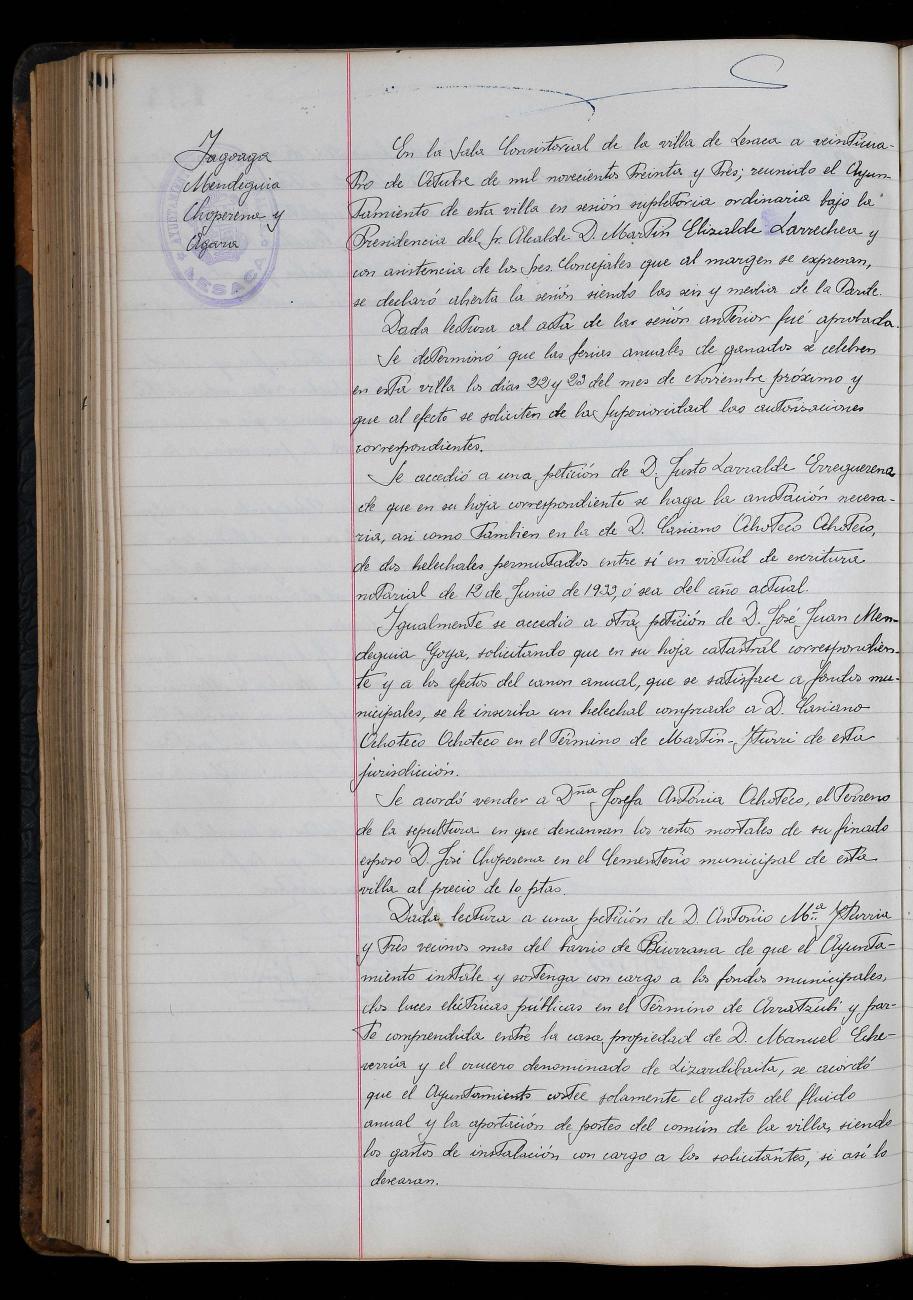 Jagoaga
Mendeguia
Choperena y
Agara
AYUNTAMIENTO
LESACA
En la Sala Consistorial de la villa de Lesaca a veinticua-
tro de Octubre de mil novecientos treinta y tres; reunido el Ayun-
tamiento de esta villa en sesión supletoria ordinaria bajo la
Presidencia del Sr. Alcalde D. Martin Elizalde Larrechea y
con asistencia de los Sres. Concejales que al margen se expresan,
se declaró abierta la sesión siendo las seis y media de la tarde.
Dada lectura al acta de la sesión anterior fué aprobada.
Se determinó que las ferias anuales de ganados se celebren
en esta villa los dias 22 y 23 del mes de Noviembre próximo y
que al efecto se soliciten de la Superioridad las autorizaciones
correspondientes.
Se accedió a una petición de D. Justo Larralde Erreguerena
de que en su hoja correspondiente se haga la anotación necesa-
ria, asi como tambien en la de D. Casiano Ochoteco Ochoteco,
de dos helechales permutados entre sí en virtud de escritura
notarial de 12 de Junio de 1933, ó sea del año actual.
Igualmente se accedio a otra petición de D. José Juan Men-
deguia Goya, solicitando que en su hoja catastral correspondien-
te y a los efectos del canon anual, que se satisface a fondos mu-
nicipales, se le inscriba un helechal comprado a D. Casiano
Ochoteco Ochoteco en el término de Martin-Iturri de esta
jurisdicción.
Se acordó vender a Dna Josefa Antonia Ochoteco, el terreno
de la sepultura en que descansan los restos mortales de su finado
esposo D. José Choperena en el Cementerio municipal de esta
villa al precio de 10 ptas.
Dada lectura a una petición de D. Antonio Mª Iturria
y tres vecinos mas del barrio de Biurrana de que el Ayunta-
miento instale y sostenga con cargo a los fondos municipales,
dos luces eléctricas públicas en el término de Arratzubi y par-
te comprendida entre la casa propiedad de D. Manuel Eche-
verria y el crucero denominado de Lizardibaita, se acordó
que el Ayuntamiento costee solamente el gasto del fluido
anual y la aportación de postes del común de la villa, siendo
los gastos de instalación con cargo a los solicitantes, si así lo
desearan.